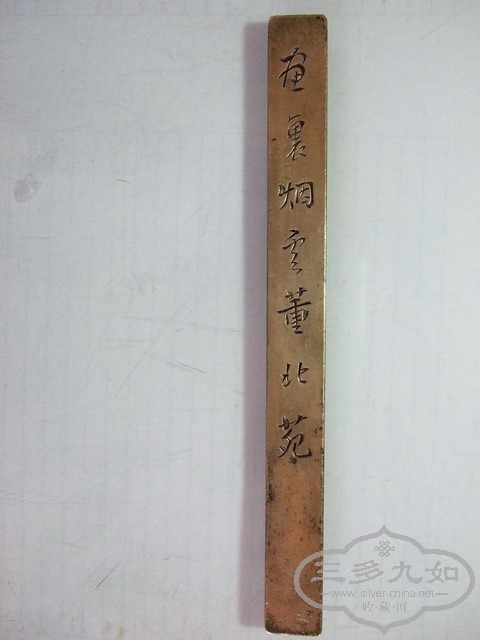 画裏烟雲董北苑
三多九如
www.silver-china.net
收藏网